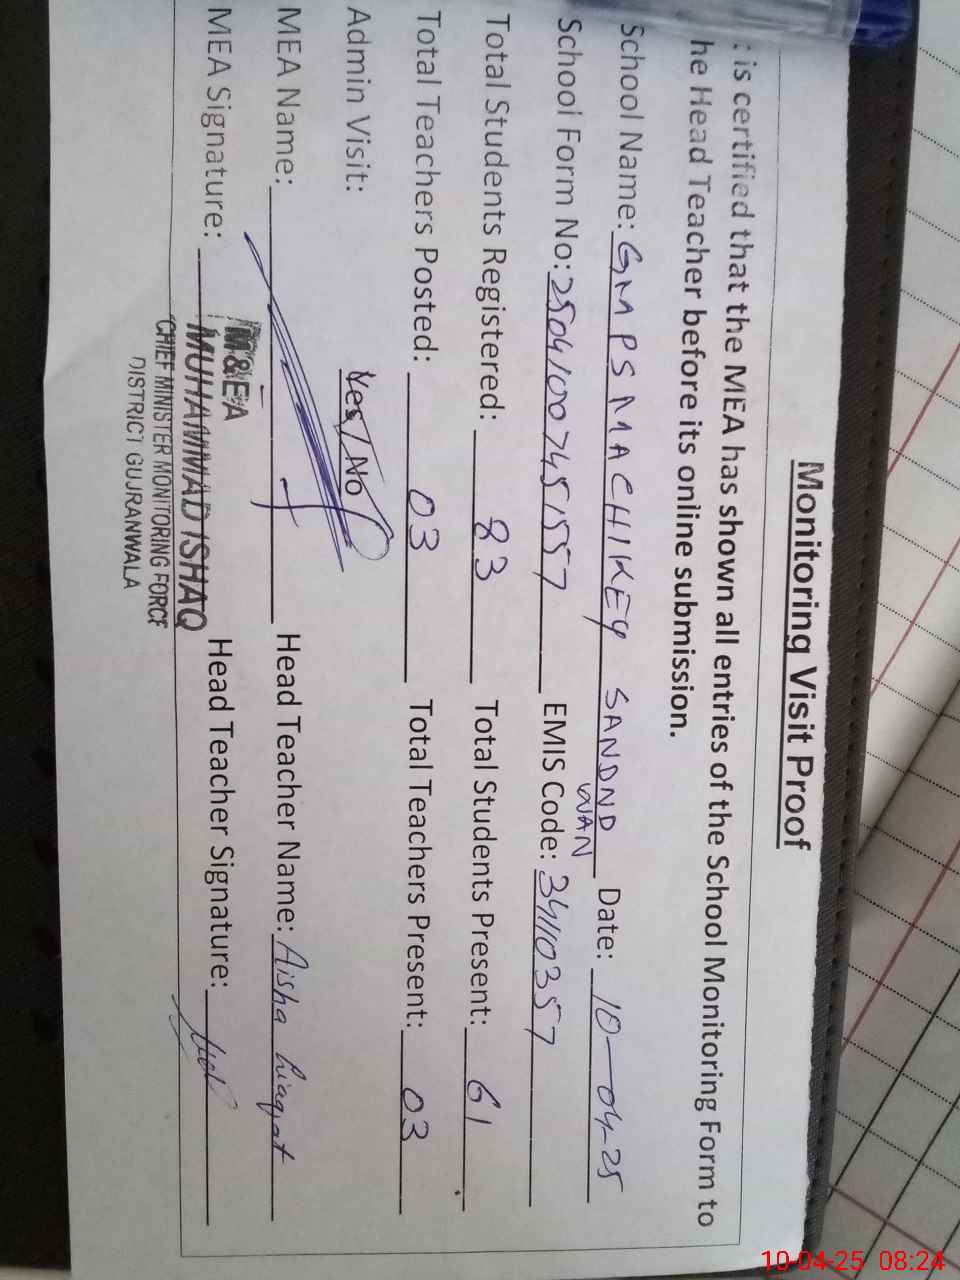 Monitoring Visit Proof
: is certified that the MEA has shown all entries of the School Monitoring Form to
he Head Teacher before its online submission.
School Name: GMPS MACHIKEY SANDND Date: 10-04-25
WAN
School Form No: 2504100745157 EMIS Code: 34110357
Total Students Registered: 83 Total Students Present: 61
Total Teachers Posted: 03 Total Teachers Present: 03
Admin Visit: Yes/No
MEA Name: Head Teacher Name: Aisha Liaqat
M&EA
MEA Signature: MUHAMMAD ISHAQ Head Teacher Signature:
CHIEF MINISTER MONITORING FORCE
DISTRICT GUJRANWALA
10-04-25 08:24